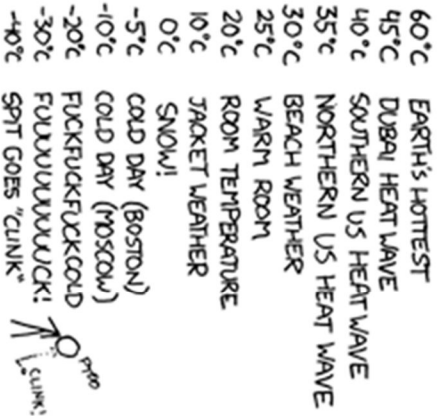 60°C EARTH'S HOTTEST
45°C DUBAI HEAT WAVE
40°C SOUTHERN US HEAT WAVE
35°C NORTHERN US HEAT WAVE
30°C BEACH WEATHER
25°C WARM ROOM
20°C ROOM TEMPERATURE
10°C JACKET WEATHER
0°C SNOW!
-5°C COLD DAY (BOSTON)
-10°C COLD DAY (MOSCOW)
-20°C FUCKFUCKFUCKCOLD
-30°C FUUUUUUUUUUCK!
-40°C SPIT GOES "CLINK"
PTOO
CLINK!